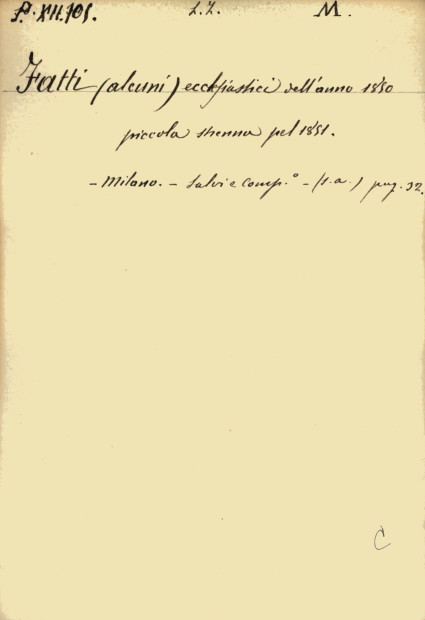 P. XII. 105. L.Z. M.
Fatti (alcuni) ecclesiastici dell'anno 1850
piccola strenna pel 1851.
- Milano. - Salvi e Comp.° - (s.a.) pag. 32.
C